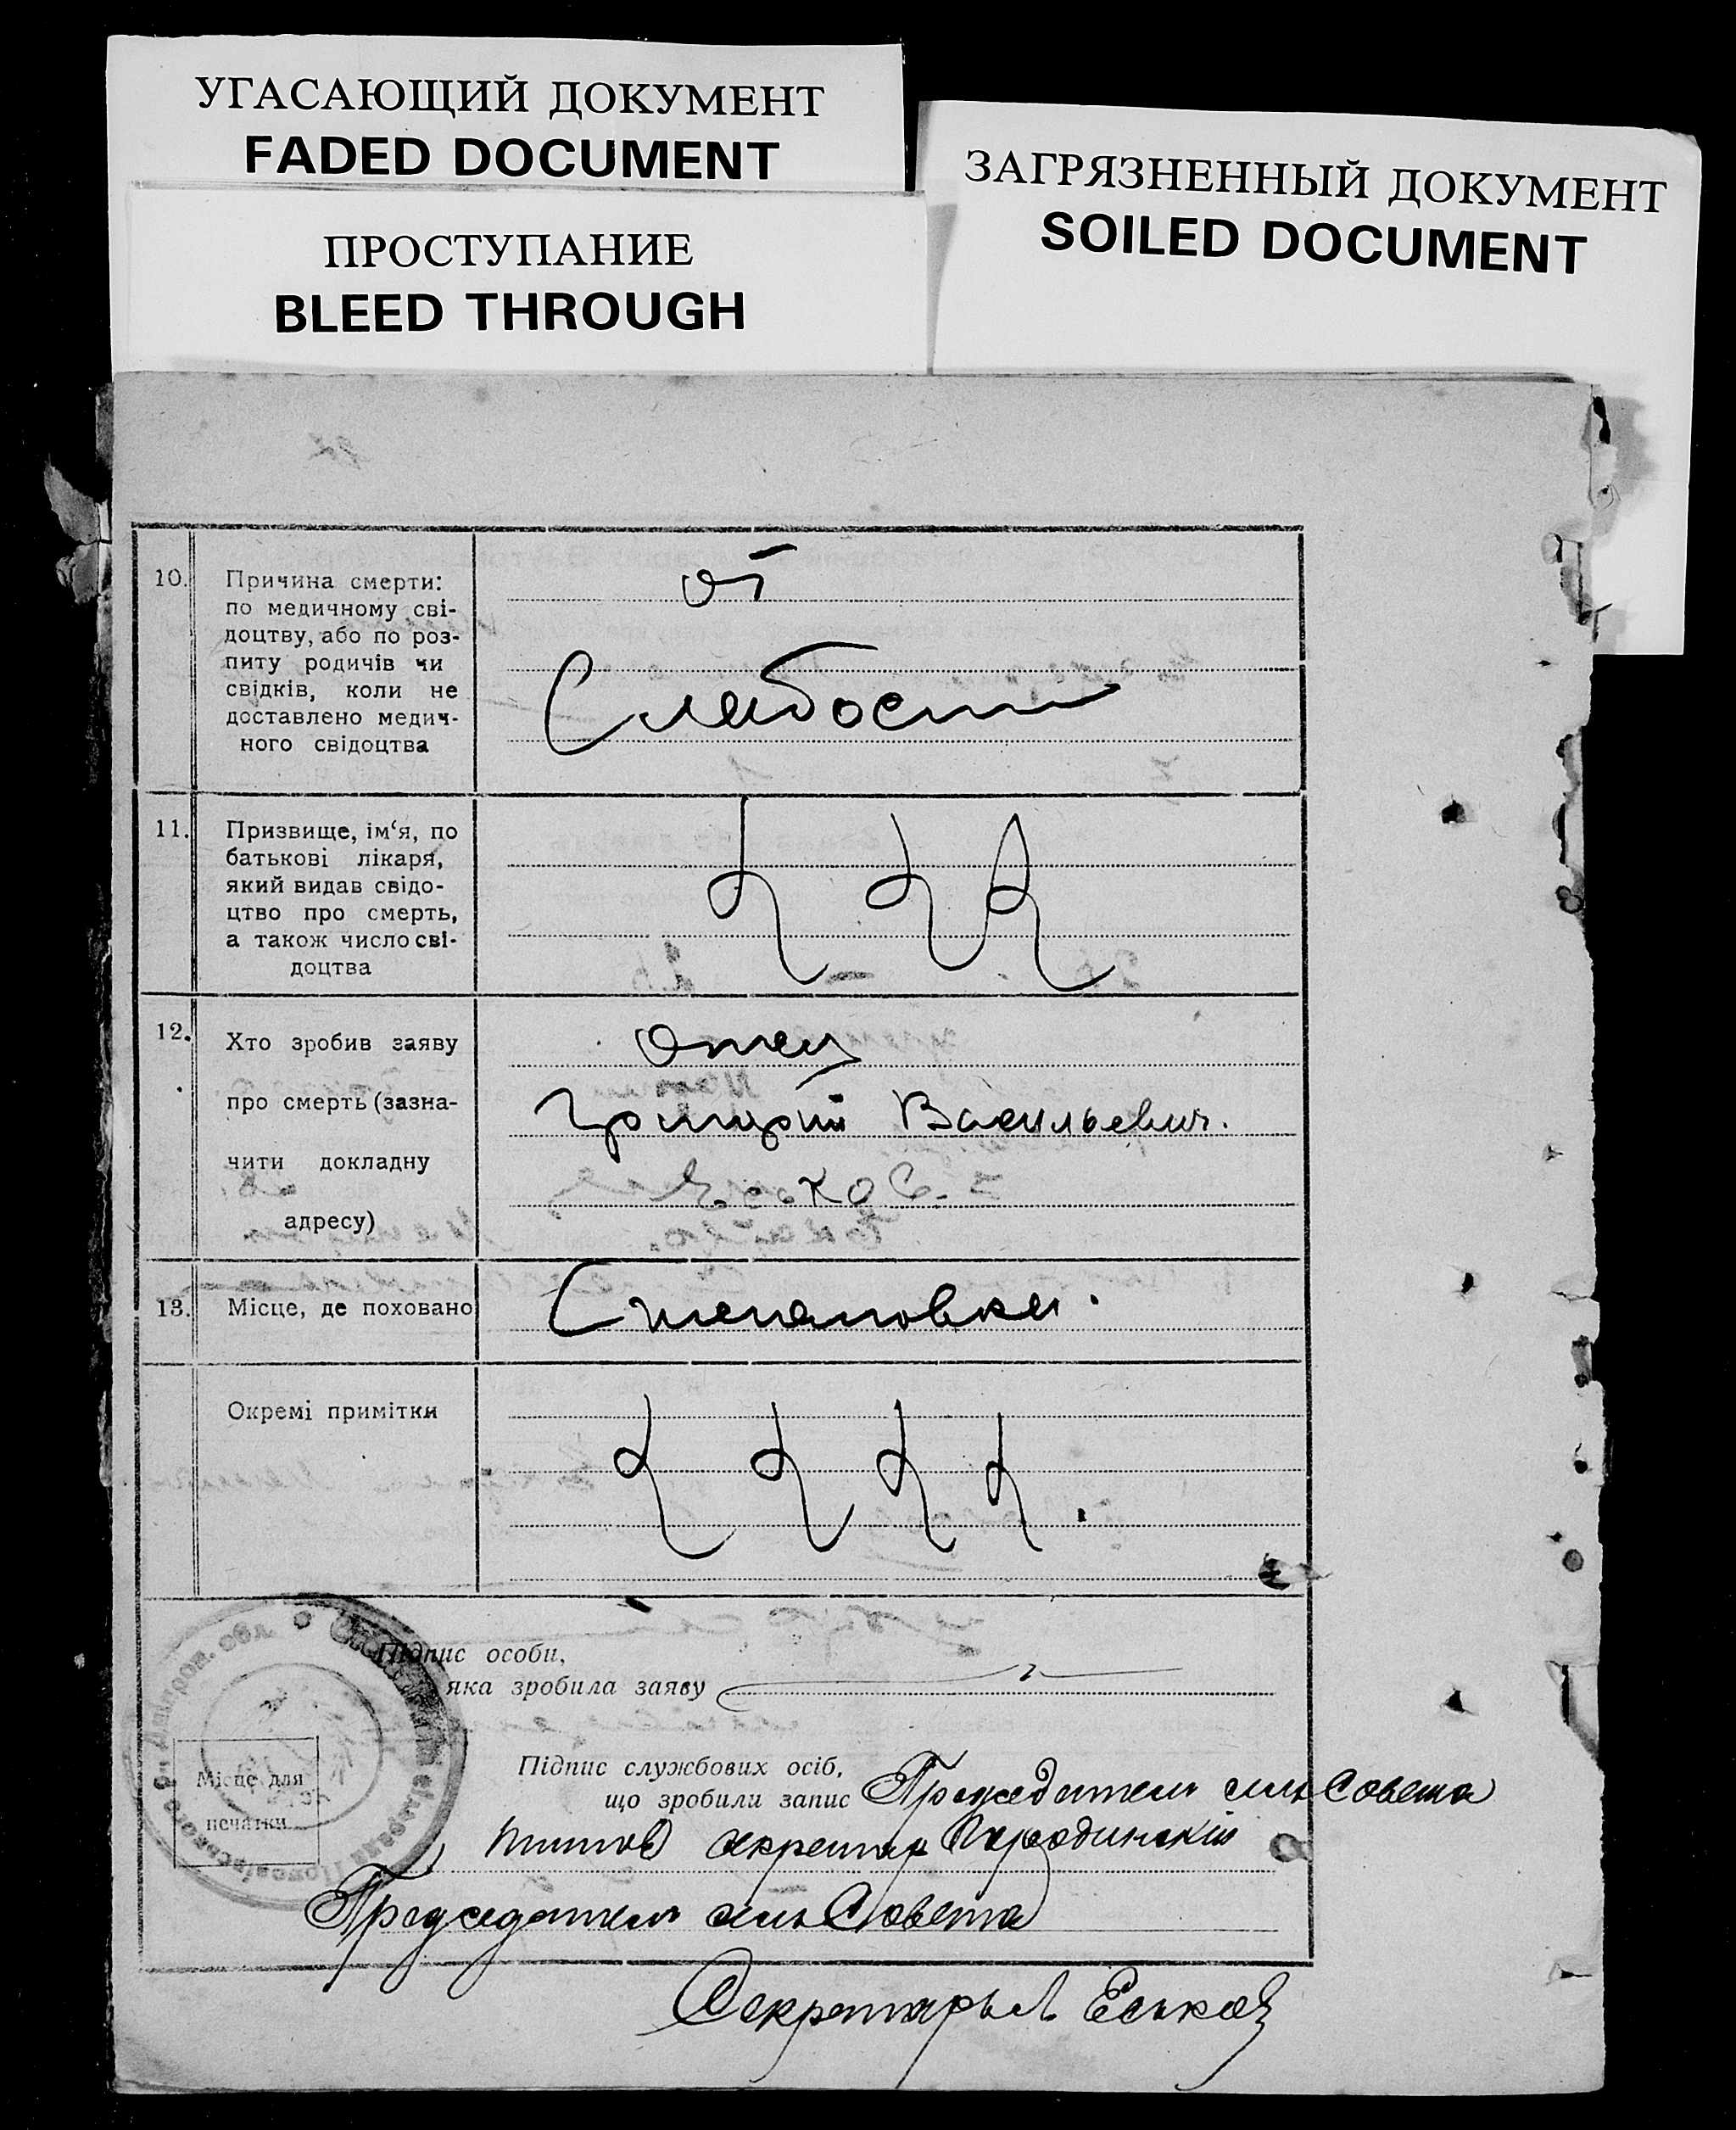 УГАСАЮЩИЙ ДОКУМЕНТ
FADED DOCUMENT
ПРОСТУПАНИЕ
BLEED THROUGH
ЗАГРЯЗНЕННЫЙ ДОКУМЕНТ
SOILED DOCUMENT
10.
Причина смерти:
по медичному сві-
доцтву, або по роз-
питу родичів чи
свідків, коли не
доставлено медич-
ного свідоцтва
от
Слабости
11.
Призвище, ім‘я, по
батькові лікаря,
який видав свідо-
цтво про смерть,
а також число сві-
доцтва
12.
Хто зробив заяву
про смерть (зазна-
чити докладну
адресу)
Отец
Григорий Васильевич.
Еськов.
13.
Місце, де поховано
Степановка.
Окремі примітки
Підпис особи,
яка зробила заяву
Місце для
печатки
Підпис службових осіб,
що зробили запис Председатель сельСовета
Титов секретар
Председатель сельСовета
Секретарь Еськов